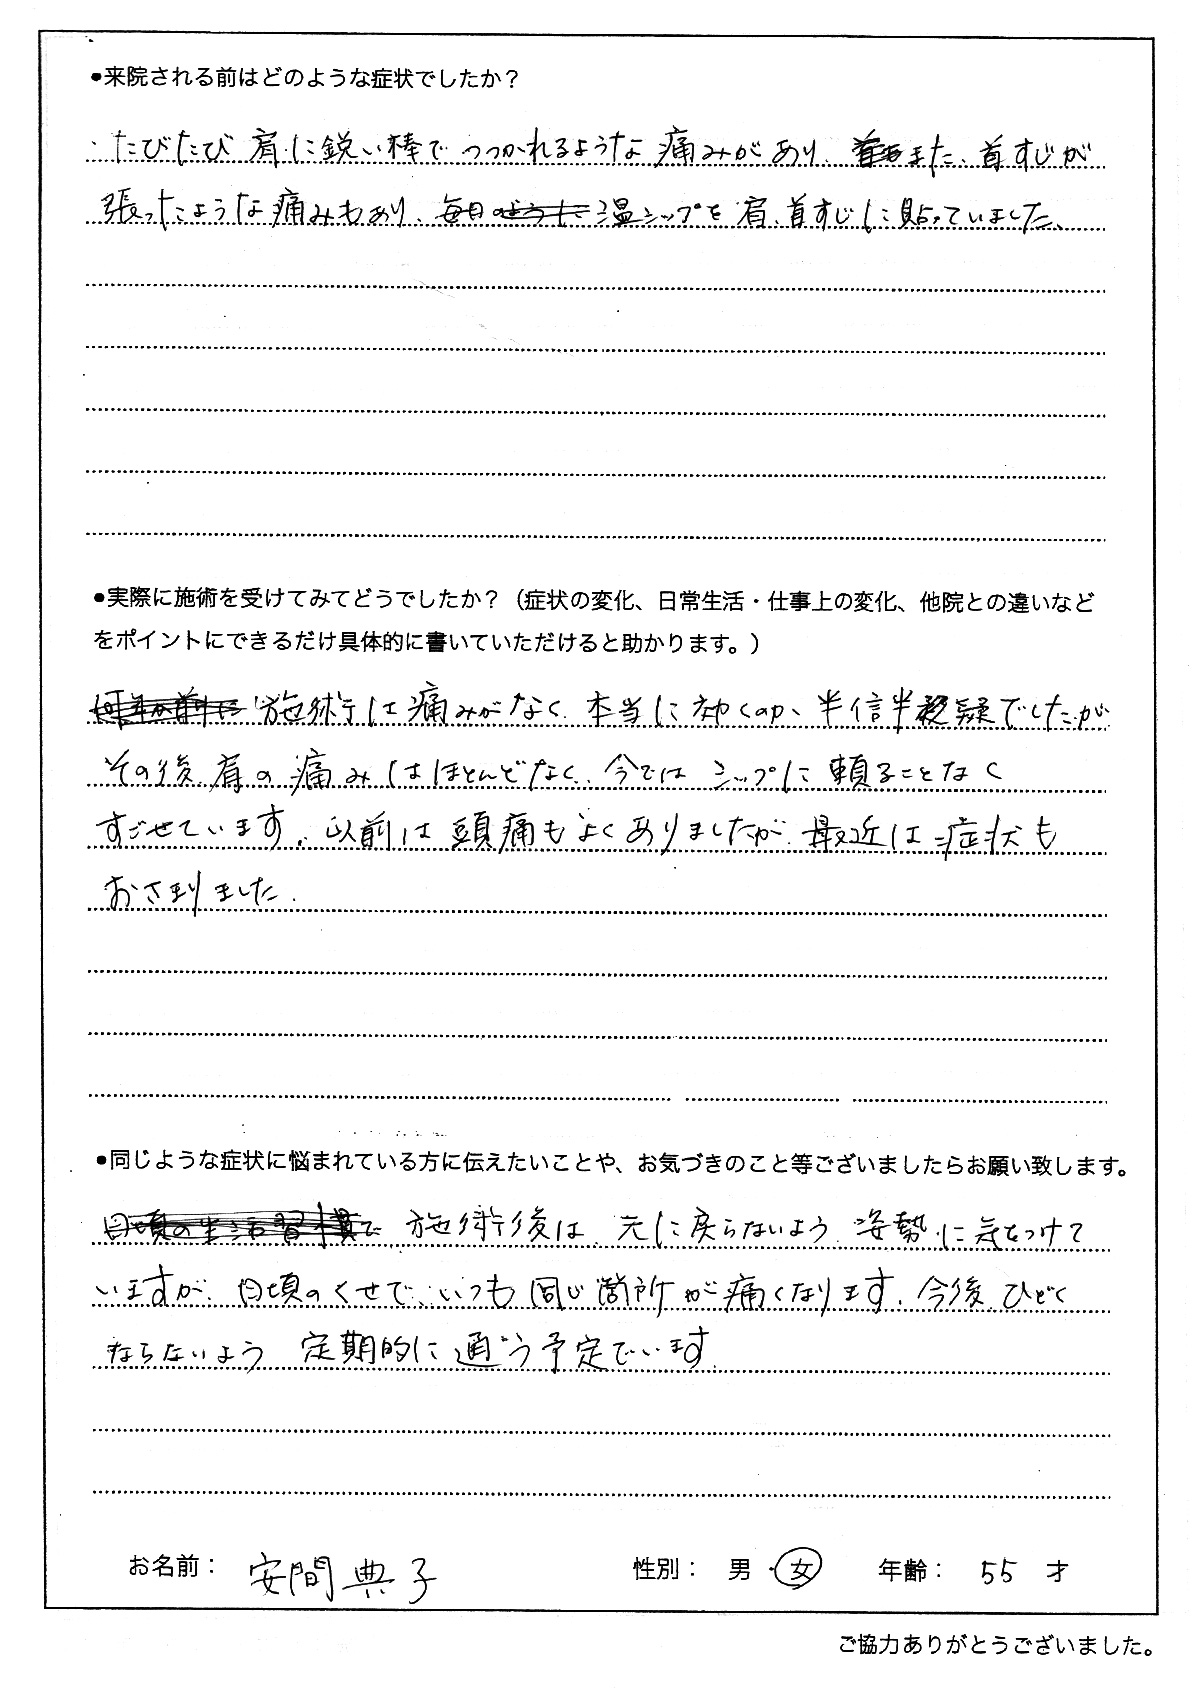 ●来院される前はどのような症状でしたか？
たびたび 肩に鋭い棒でつつかれるような痛みがあり、また、首すじが
張ったような痛みもあり、毎日温シップを肩、首すじに貼っていました。
●実際に施術を受けてみてどうでしたか？（症状の変化、日常生活・仕事上の変化、他院との違いなど
をポイントにできるだけ具体的に書いていただけると助かります。）
施術は痛みがなく、本当に効くのか、半信半疑でしたが
その後、肩の痛みはほとんどなく、今ではシップに頼ることなく
すごせています。以前は頭痛もよくありましたが、最近は症状も
おさまりました。
●同じような症状に悩まれている方に伝えたいことや、お気づきのこと等ございましたらお願い致します。
施術後は、元に戻らないよう、姿勢に気をつけて
いますが、日頃のくせで、いつも同じ箇所が痛くなります。今後、ひどく
ならないよう 定期的に通う予定でいます。
お名前： 安間典子 性別： 男・女 年齢： 55 才
ご協力ありがとうございました。